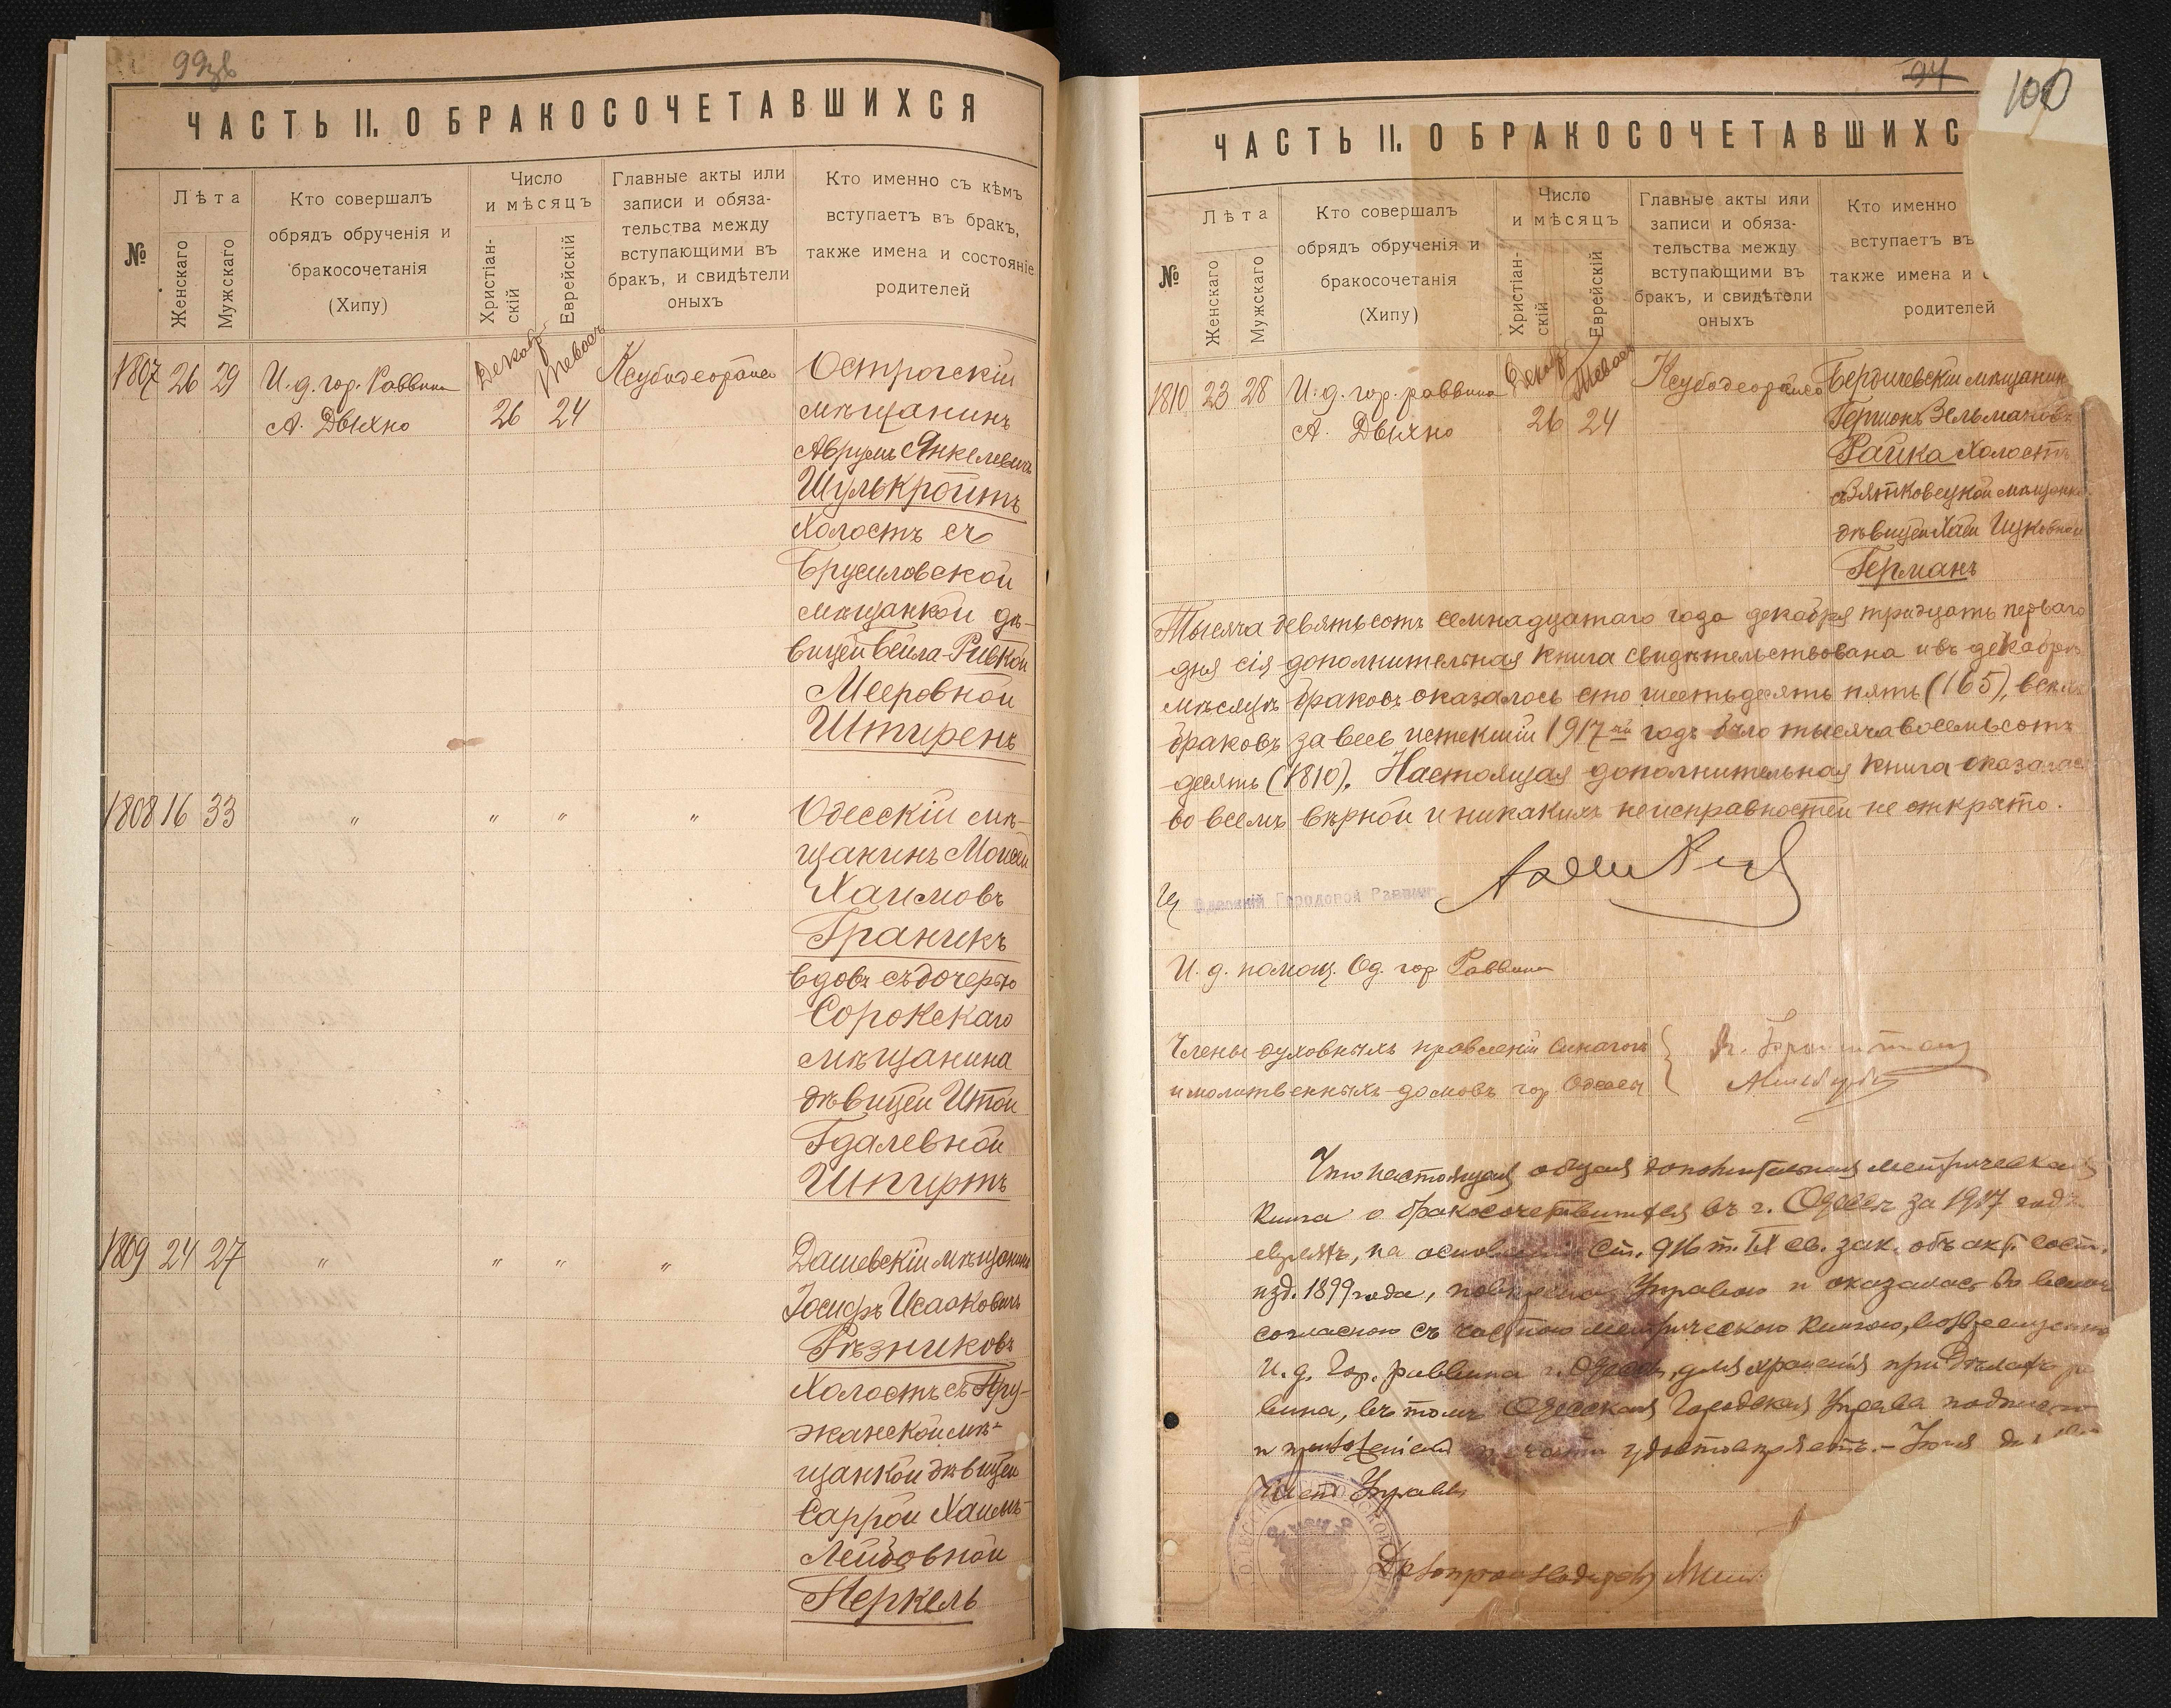 99зв
ЧАСТЬ II. О БРАКОСОЧЕТАВШИХСЯ
№
Лѣта
Женскаго
Мужскаго
Кто совершалъ
обрядъ обрученія и
бракосочетанія
(Хипу)
Число
и мѣсяцъ
Христіан-
скій
Еврейскій
Главные акты или
записи и обяза-
тельства между
вступающими въ
бракъ, и свидѣтели
оныхъ
Кто именно съ кѣмъ
вступаетъ въ бракъ,
также имена и состояніе
родителей
1807 26 29 И. д. гор. Раввина
А. Двихно
Декабр. Тевасъ
26 24
Ксубодеорайсо
Острогскій
мѣщанинъ
Аврумъ Янкелевичъ
Шулькройтъ
холостъ съ
Брусиловской
мѣщанкой дѣ-
вицей Бейла-Ривкой
Мееровной
Штиренъ
1808 16 33 " " " "
Одесскій мѣ-
щанинъ Моисей
Хаимовъ
Граникъ
вдовъ съ дочерью
Сорокскаго
мѣщанина
дѣвицей Итой
Гдалевной
Шпиртъ
1809 24 27 " " " "
Дашевскій мѣщанинъ
Іосифъ Исааковичъ
Рѣзниковъ
холостъ съ Пру-
жанской мѣ-
щанкой дѣвицей
Саррой Хаимъ-
Лейбовной
Перкель
94
100
ЧАСТЬ II. О БРАКОСОЧЕТАВШИХС
№
Лѣта
Женскаго
Мужскаго
Кто совершалъ
обрядъ обрученія и
бракосочетанія
(Хипу)
Число
и мѣсяцъ
Христіан-
скій
Еврейскій
Главные акты или
записи и обяза-
тельства между
вступающими въ
бракъ, и свидѣтели
оныхъ
Кто именно
вступаетъ въ
также имена и с
родителей
1810 23 28 И. д. гор. раввина
А. Двихно
Декабр. Тевасъ
26 24
Ксубодеорайсо
Бердичевскій мѣщанин
Гершонъ Зельмановъ
Райка холостъ
съ Вятковецкой мѣщанк
дѣвицей Хаей Ицковной
Германъ
Тысяча девятьсотъ семнадцатаго года декабря тридцать перваго
дня сія дополнительная книга свидѣтельствована и въ декабрѣ
мѣсяцѣ браковъ оказалось сто шестьдесять пять (165), всѣхъ
браковъ за весь истекшій 1917-ый годъ было тысяча восемьсотъ
десять (1810). Настоящая дополнительная книга оказалась
во всемъ вѣрной и никакихъ неисправностей не открыто.
Одесскій Городовой Раввинъ
И. д. помощ. Од. гор. Раввина
Члены духовныхъ правленій синагогъ
и молитвенныхъ домовъ гор. Одессы
Что настоящая общая дополнительная метрическая
книга о бракосочетавшихся въ г. Одессѣ за 1917 годъ
евреяхъ, на основаніи ст. 916 т. IX св. зак. объ акт. сост.
изд. 1899 года, повѣрена Управою и оказалась во всемъ
согласною съ частною метрическою книгою, возвращенною
И. д. Гор. раввина г. Одессы, для храненія при дѣлахъ р
вина, въ томъ Одесская Городская Управа подписью
и приложеніемъ печати удостовѣряетъ. - Іюля
Членъ Управы
Дѣлопроизводитель